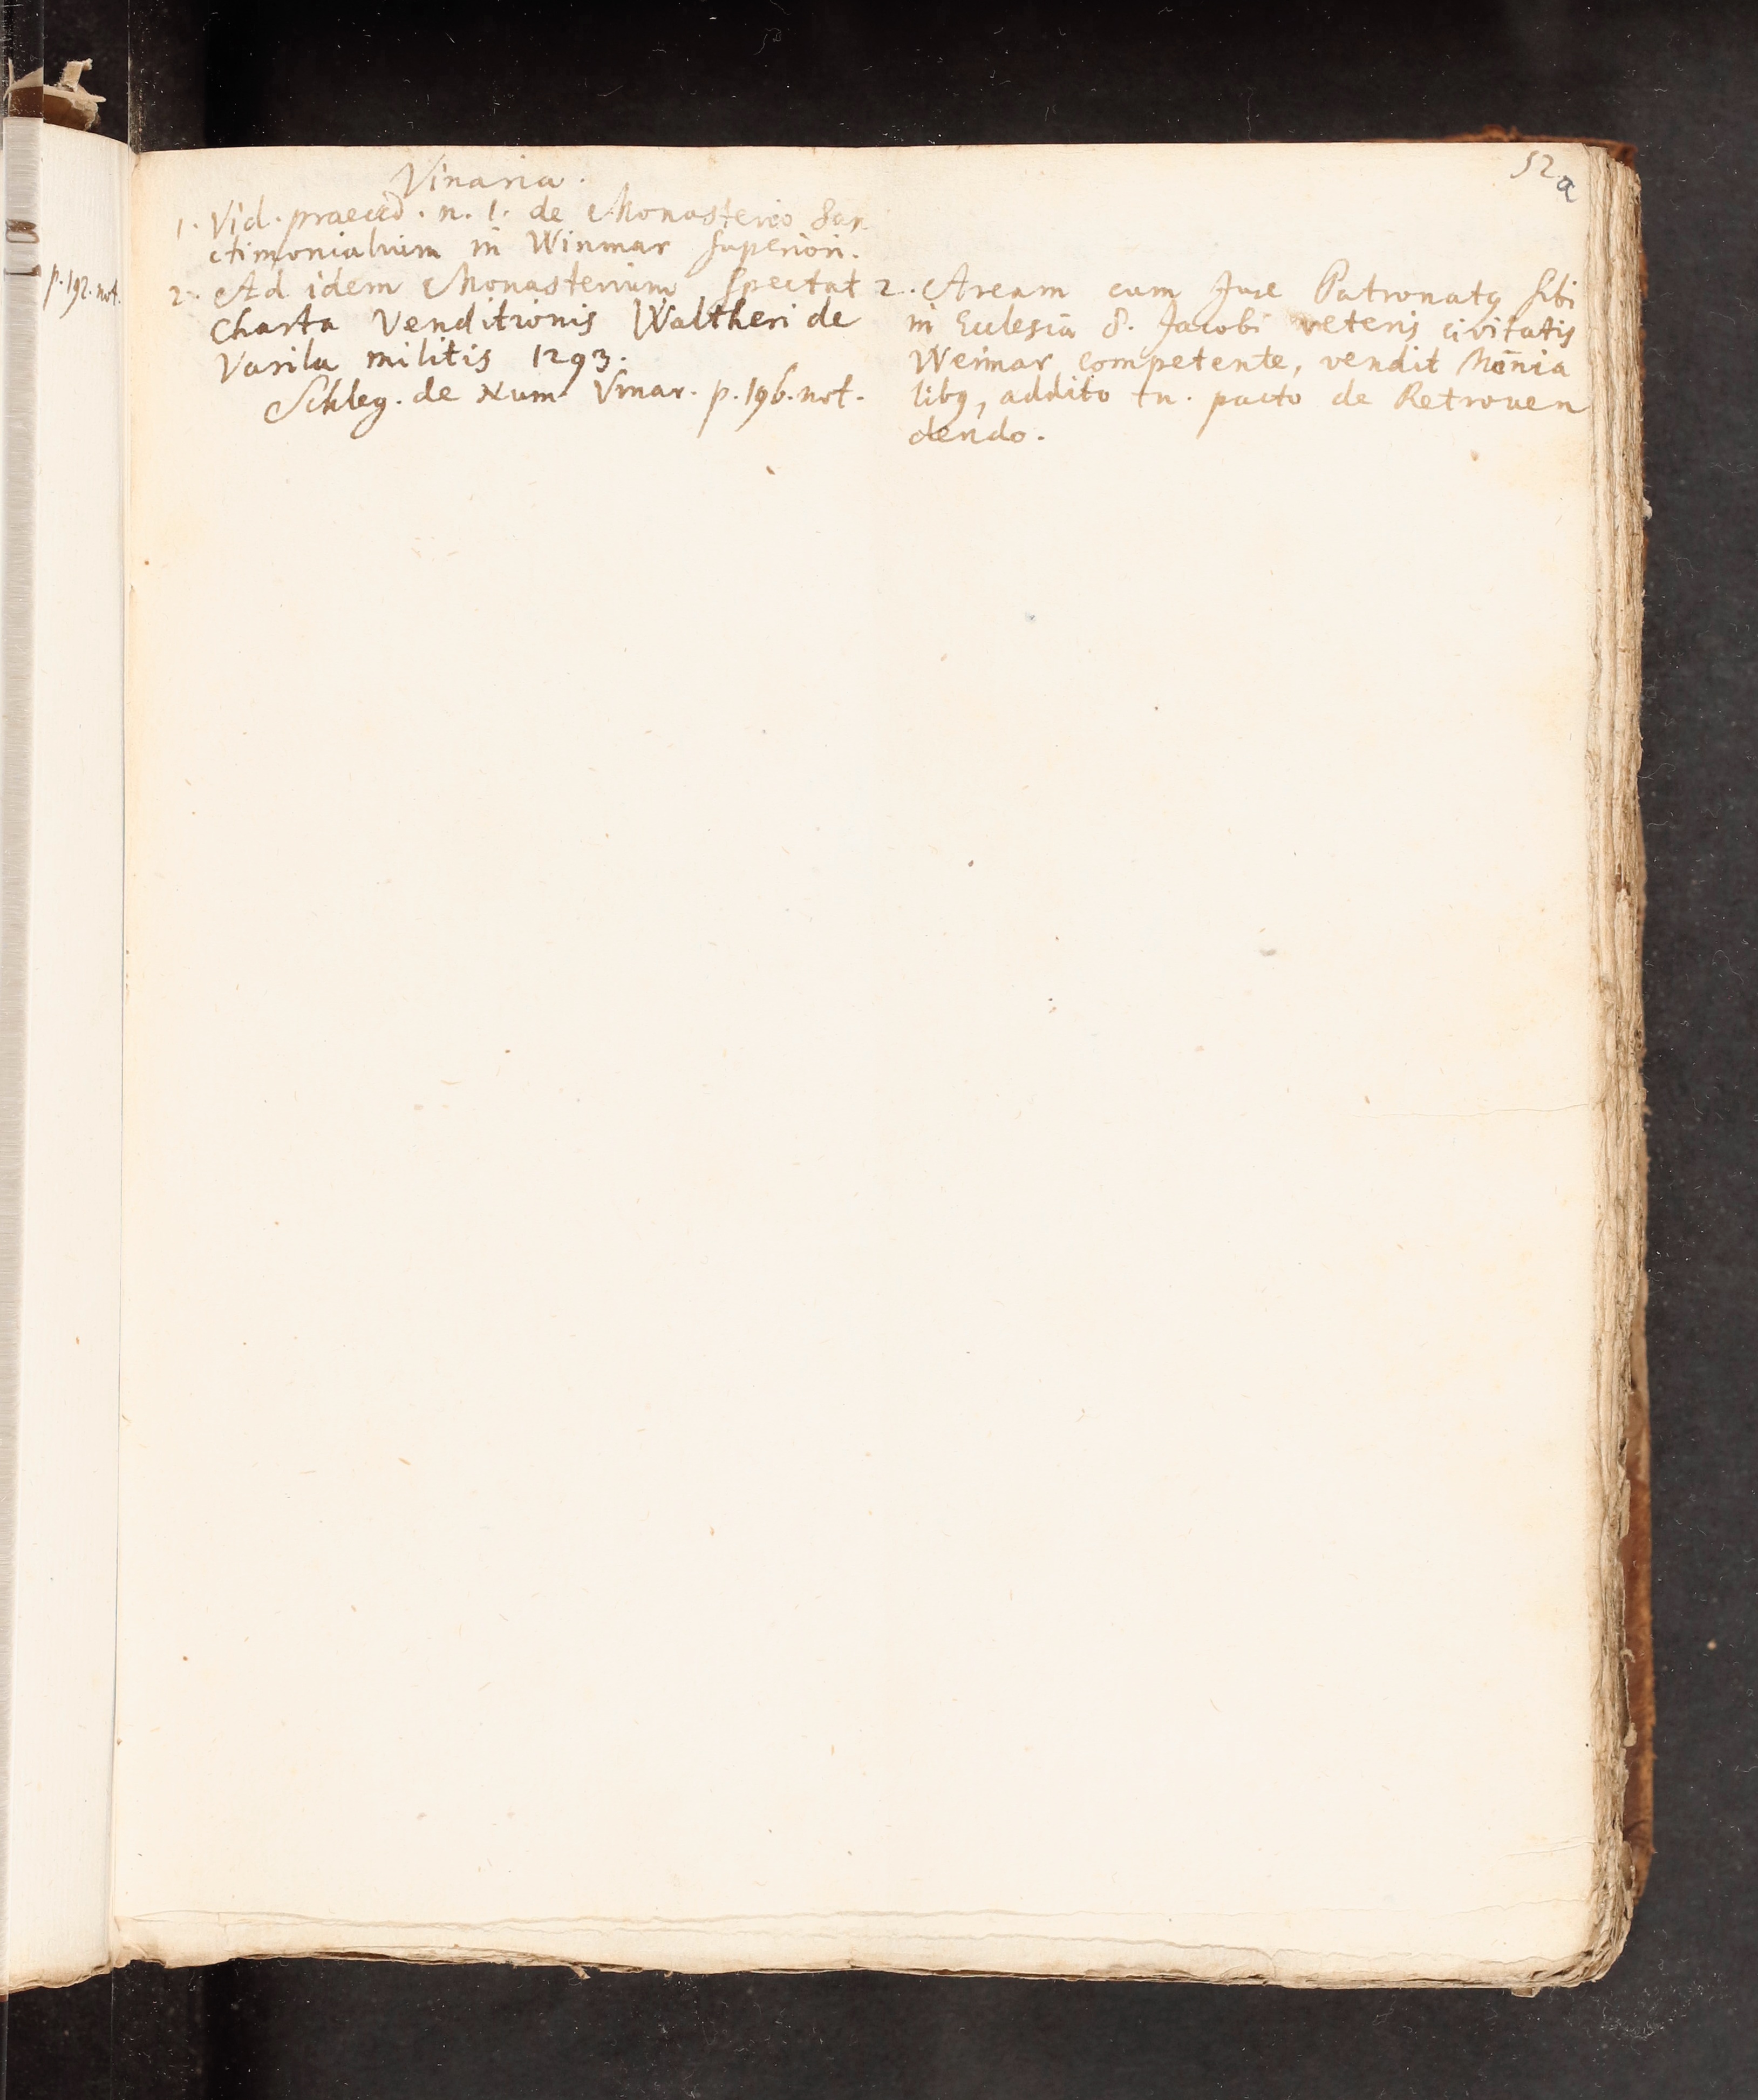 52a
Vinaria.
1. Vid. praeced. n. 1. de Monasterio San
ctimonialium in Winmar superiori.
p. 192. not.
2. Ad idem Monasterium spectat
Charta Venditionis Waltheri de
Varila militis 1293.
Schleg. de Num Vinar. p. 196. not.
2. Aream cum Jure Patronatꝯ sibi
in Ecclesia S. Jacobi veteris civitatis
Weimar competente, vendit Mōnia
libꝯ, addito tn. pacto de Retrouen
dendo.